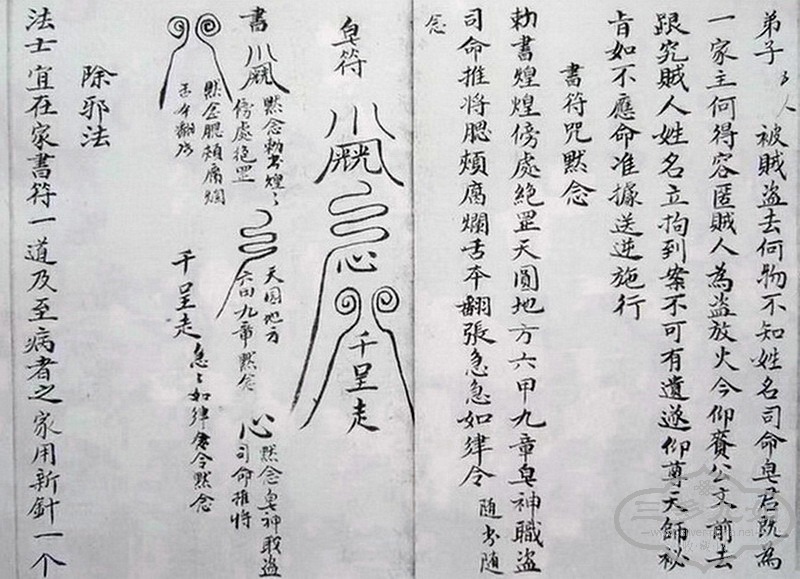 弟子 厶人 被賊盜去何物不知姓名司命皂君既為
一家主何得容匿賊人為盜放火今仰賫公文前去
跟究賊人姓名立拘到案不可有遺遂仰尊天師祕
旨如不應命准據送逆施行
書符咒默念
勅書煌煌傍處絕罡天圓地方六甲九章皂神職盜
司命推将腮頰腐爛舌本翻張急急如律令 随書随
念
皂符
心
千呈走
書
默念勅書煌々
傍處絕罡
天圓地方
六甲九章默念
心 默念皂神職盜
司命推将
默念腮頰腐爛
舌本翻張
千呈走 急々如律令默念
除邪法
法士宜在家書符一道及至病者之家用新針一个